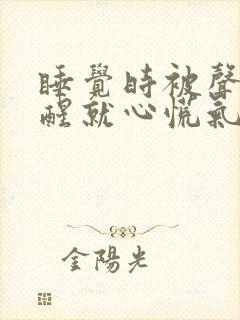 睡覺時被聲
醒就心慌氣
金陽光